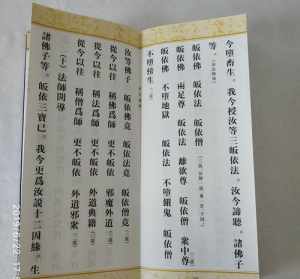 今墮畜生。我今授汝等三皈依法。汝今諦聽。諸佛子
等。
皈依佛　皈依法　皈依僧
皈依佛　兩足尊　皈依法　離欲尊　皈依僧　眾中尊
皈依佛　不墮地獄　皈依法　不墮餓鬼　皈依僧
不墮傍生
汝等佛子　皈依佛竟　皈依法竟　皈依僧竟
從今以往　稱佛為師　更不皈依　邪魔外道
從今以往　稱法為師　更不皈依　外道典籍
從今以往　稱僧為師　更不皈依　外道邪眾
(十)法師開導
諸佛子等。皈依三寶已。我今更為汝說十二因緣。生